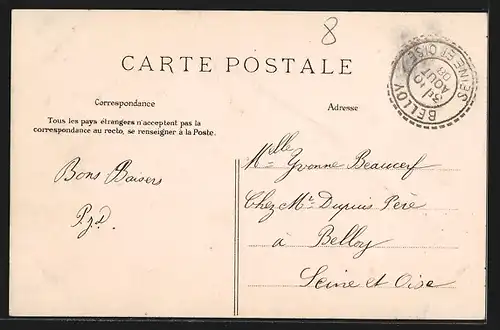 8
CARTE POSTALE
BELLOY
SEINE ET OISE
AOUT
Correspondance
Adresse
Tous les pays étrangers n'acceptent pas la
correspondance au recto, se renseigner à la Poste.
Bons Baisers
Melle Yvonne Beaucerf
Chez Mr Dupuis Père
à Belloy
Seine et Oise